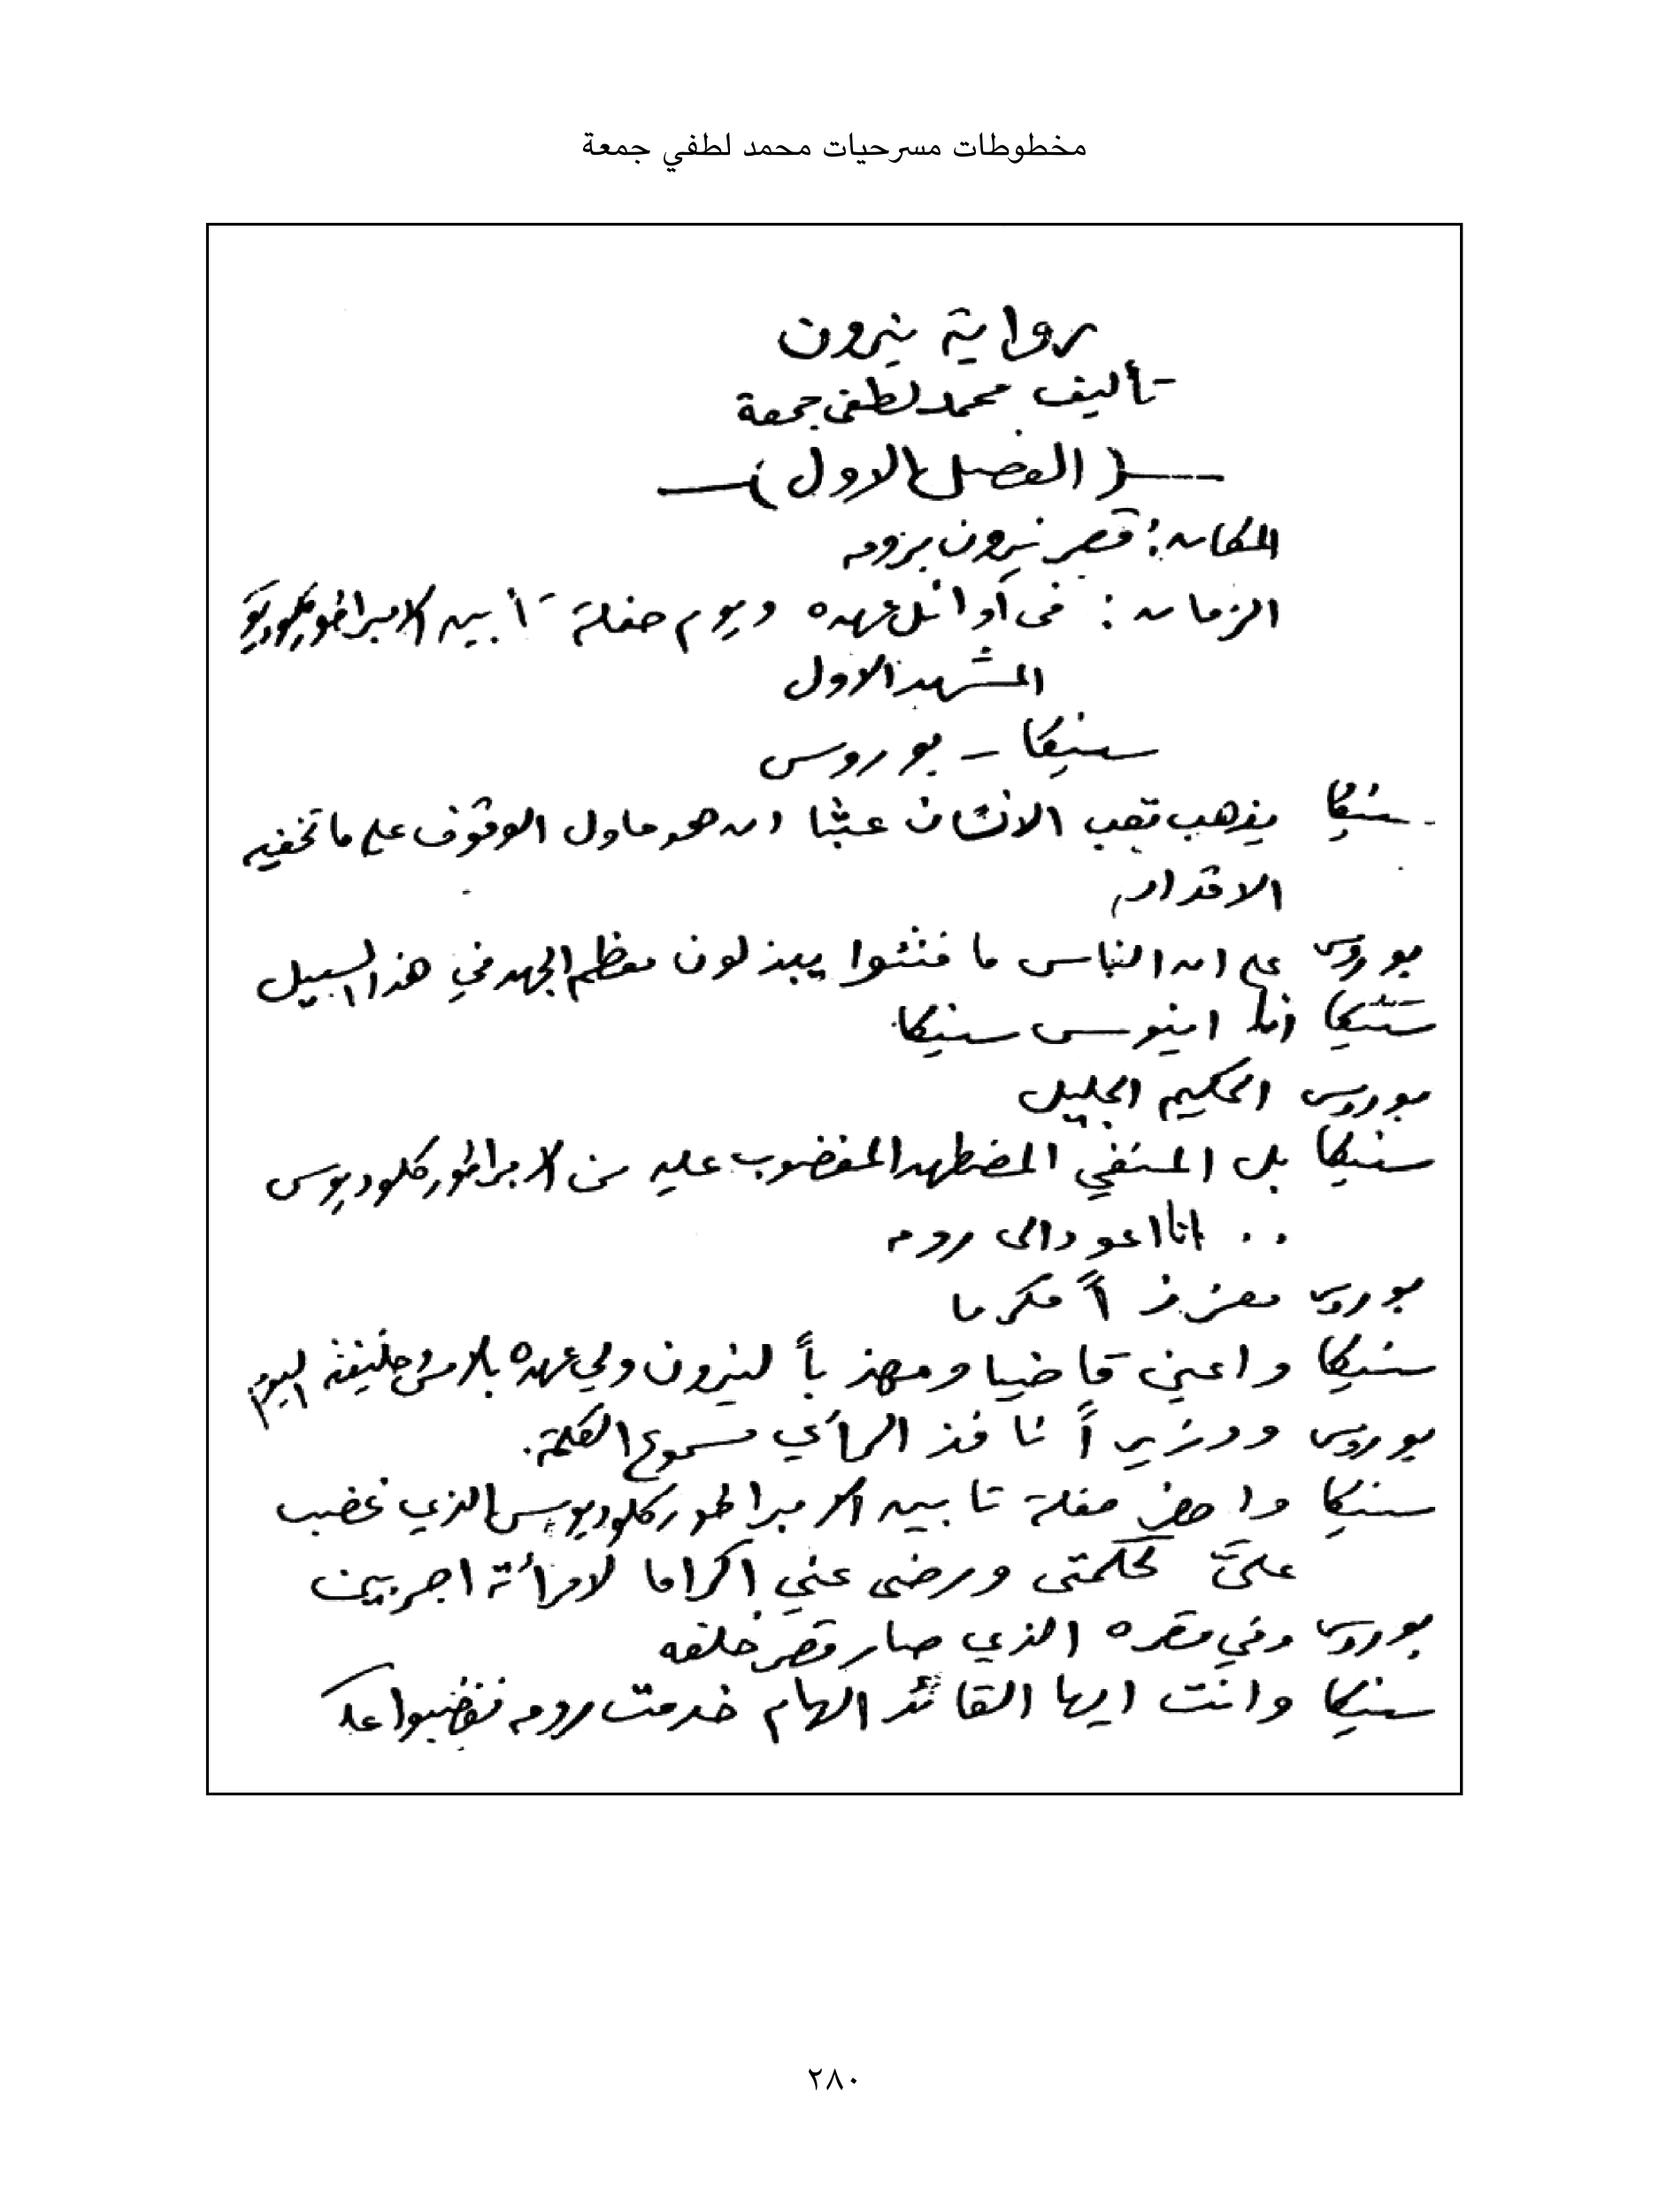 مخطوطات مسرحيات محمد لطفي جمعة
رواية نيرون
تأليف محمد لطفى جمعة
—( الفصل الاول )—
المكان: قصر نيرون برومه
الزمان: فى أوائل عهده ويوم حفلة تأبين الامبراطور كلوديوس
المشهد الاول
سنيكا – بوروس
سنيكا يذهب تعب الانسان عبثا ان هو حاول الوقوف على ما تخفيه
الاقدار
بوروس على ان الناس ما فتئوا يبذلون معظم الجهد في هذا السبيل
سنيكا أنا اينوس سنيكا
بوروس الحكيم الجليل
سنيكا بل المنفي المضطهد المغضوب عليه من الامبراطور كلوديوس
.. انا اعود الى رومه
بوروس معززاً مكرما
سنيكا واعين قاضيا ومهذباً لنيرون ولي عهده بالامس وخليفته اليوم
بوروس ووزيراً نافذ الرأي مسموع الكلمة.
سنيكا واحضر حفلة تابين الامبراطور كلوديوس الذي غضب
علىَّ لحكمتى ورضى عني اكراما لامرأته اجريبين
بوروس وفي مقره الذي صار قصر خلفه
سنيكا وانت ايها القائد الهام خدمت رومه فغضبوا عليك
٢٨٠